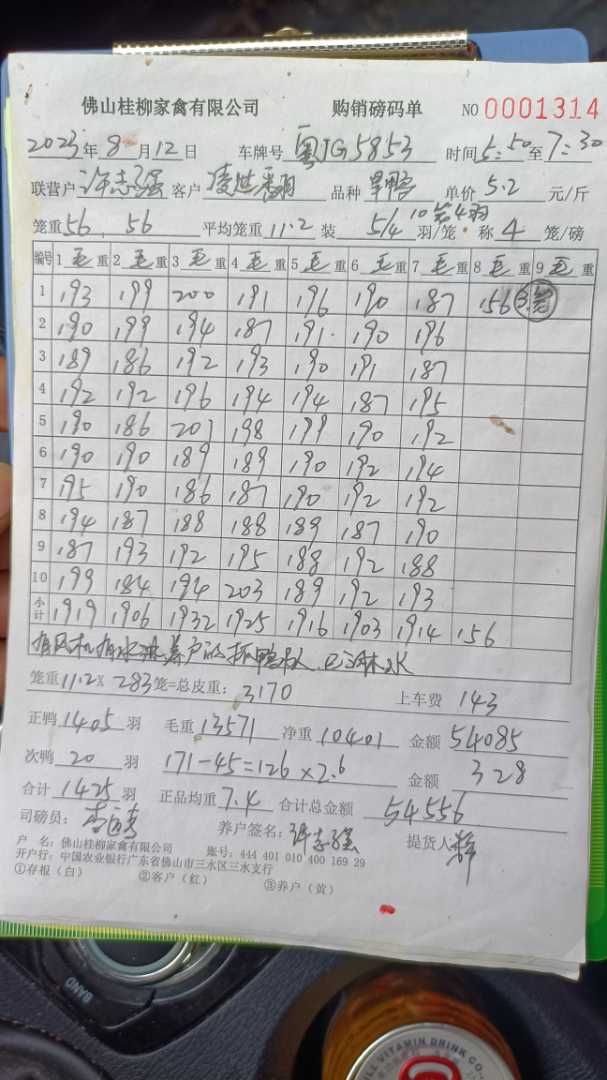 佛山桂柳家禽有限公司 购销磅码单 NO 0001314
2023年8月12日 车牌号 粤JG5853 时间5:50至7:30
联营户 许志强 客户 凌世 品种 旱鸭 单价5.2元/斤
10笼4羽
笼重56、56 平均笼重11.2 装 5/4 羽/笼·称4笼/磅
编号 1毛重 2毛重 3毛重 4毛重 5毛重 6毛重 7毛重 8毛重 9毛重
1 193 199 200 191 196 190 187 156 3笼
2 190 199 194 187 191 190 196
3 189 186 192 193 190 191 187
4 192 192 196 194 194 187 195
5 190 186 201 198 199 190 192
6 190 190 189 189 190 192 194
7 195 190 186 187 190 192 192
8 194 187 188 188 189 187 190
9 187 193 192 195 188 192 188
10 199 184 194 203 189 192 193
小计 1919 1906 1932 1925 1916 1903 1914 156
有风机有水 养户 抓鸭 已淋水
笼重11.2×283笼=总皮重:3170 上车费 143
正鸭1405羽 毛重13571 净重10401 金额54085
次鸭20羽 171-45=126×2.6 金额 328
合计1425羽 正品均重7.4 合计总金额 54556
司磅员: 养户签名:许志强 提货人
户 名:佛山桂柳家禽有限公司 账号:444 401 010 400 169 29
开户行:中国农业银行广东省佛山市三水区三水支行
①存根(白) ②客户(红) ③养户(黄)
BAND
LL VITAMIN DRINK CO